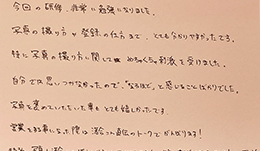 今回の研修、非常に勉強になりました。
写真の撮り方や登録の仕方まで、とても分かりやすかったです。
特に写真の撮り方に関して めちゃくちゃ刺激を受けました。
自分では思いつかなかったので、"なるほど"と感じることばかりでした。
写真を褒めていただいた事もとても嬉しかったです
営業をする事になった際は 直伝のトークでがんばります!